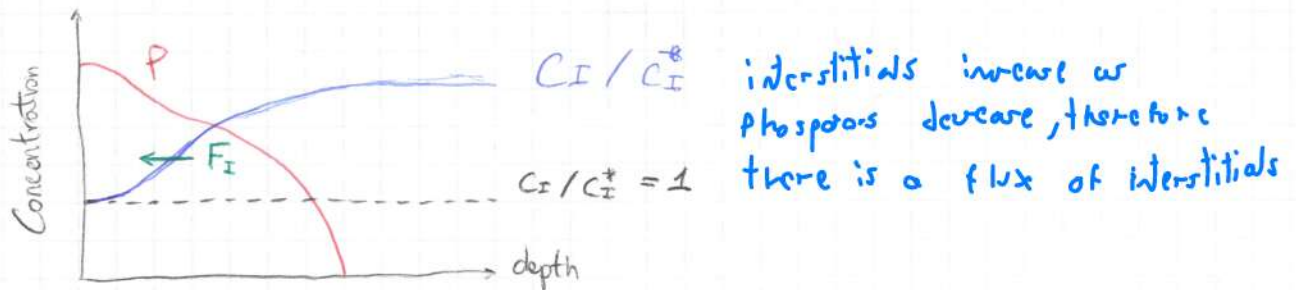 Concentration
P
C_I / C_I^*
F_I
C_I / C_I^* = 1
depth
interstitials increase as
Phosporors decrease, therefore
there is a flux of interstitials